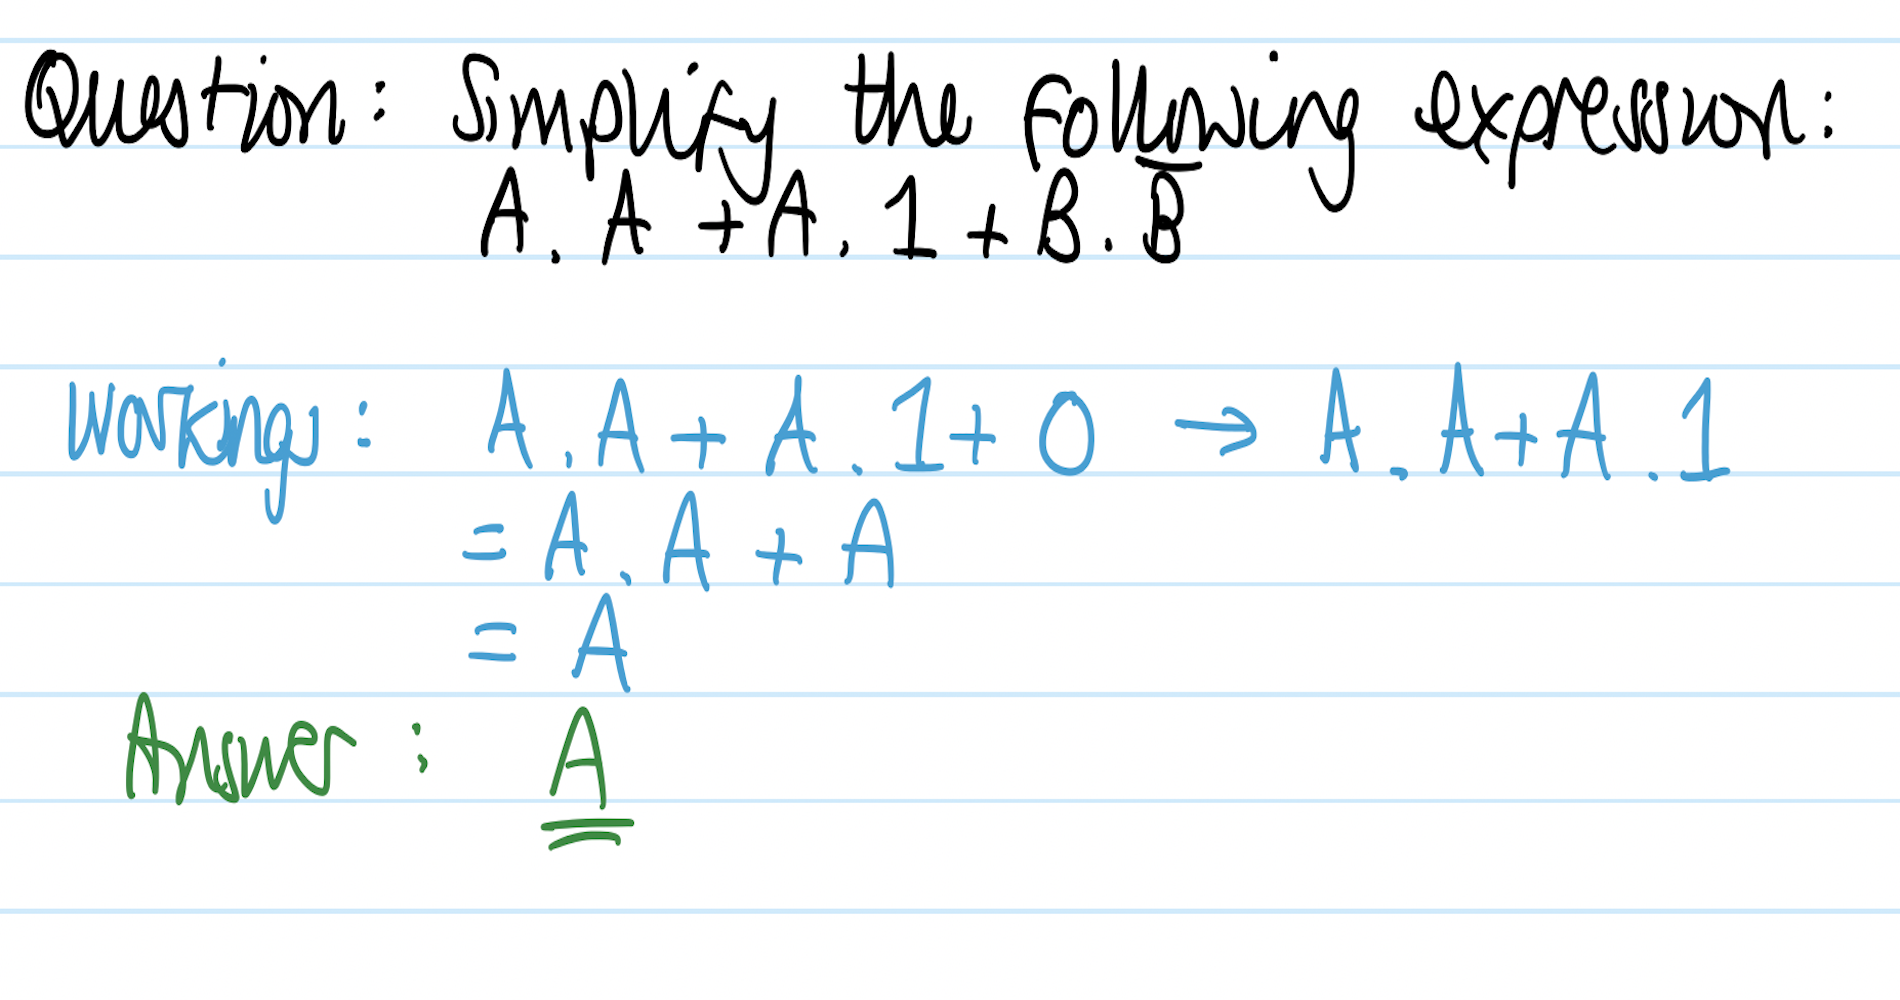 Question: Simplify the following expression:
A . A + A . 1 + B . B̅
Working: A . A + A . 1 + 0 → A . A + A . 1
= A . A + A
= A
Answer : A